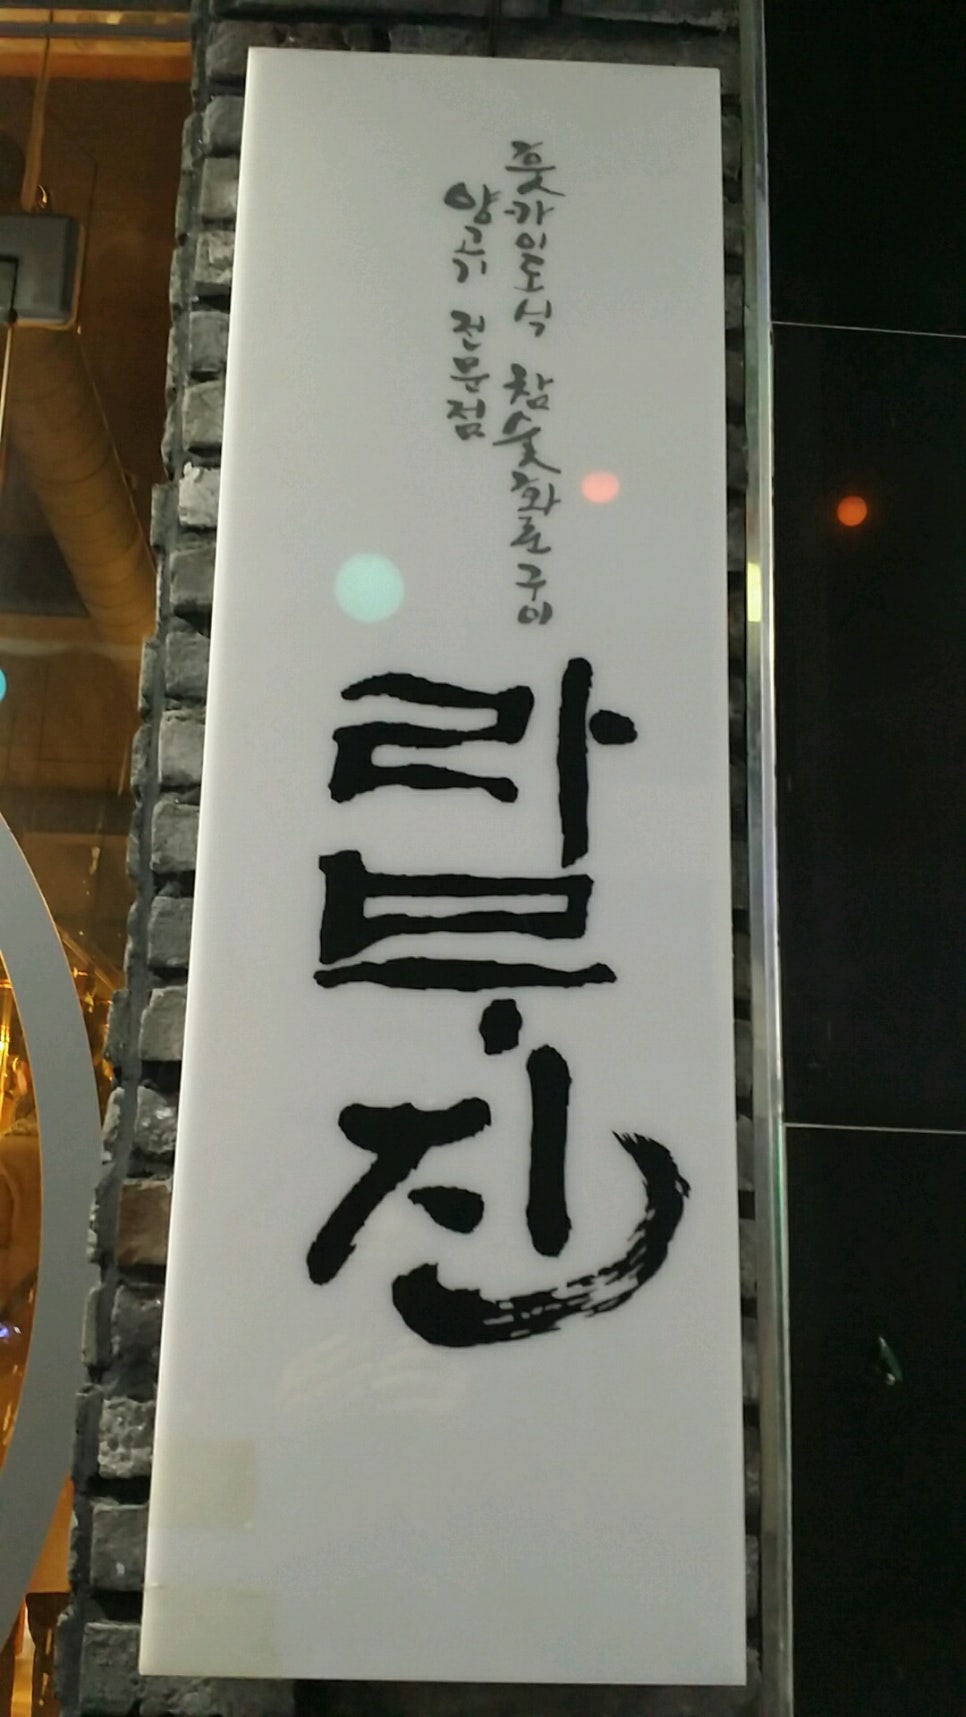 훗카이도식 참숯화로구이
양고기 전문점
라무진